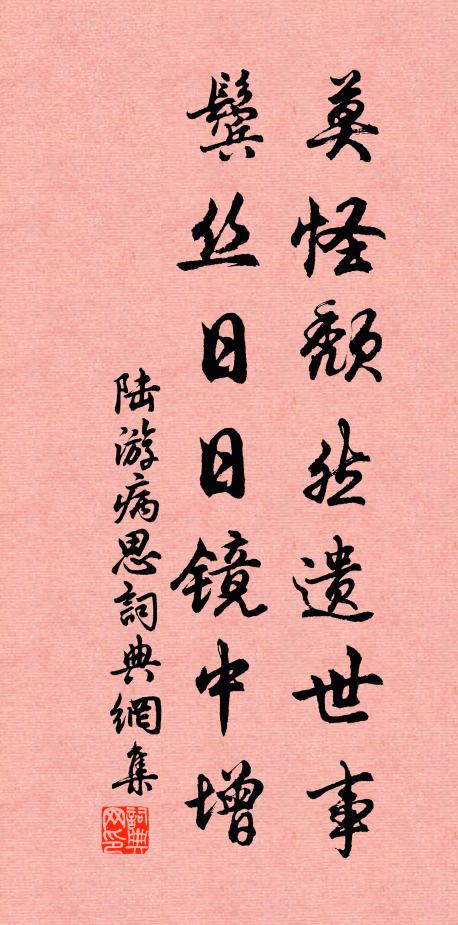 莫怪頹然遗世事
鬓丝日日镜中增
陆游病思詞典網集
詞典网印